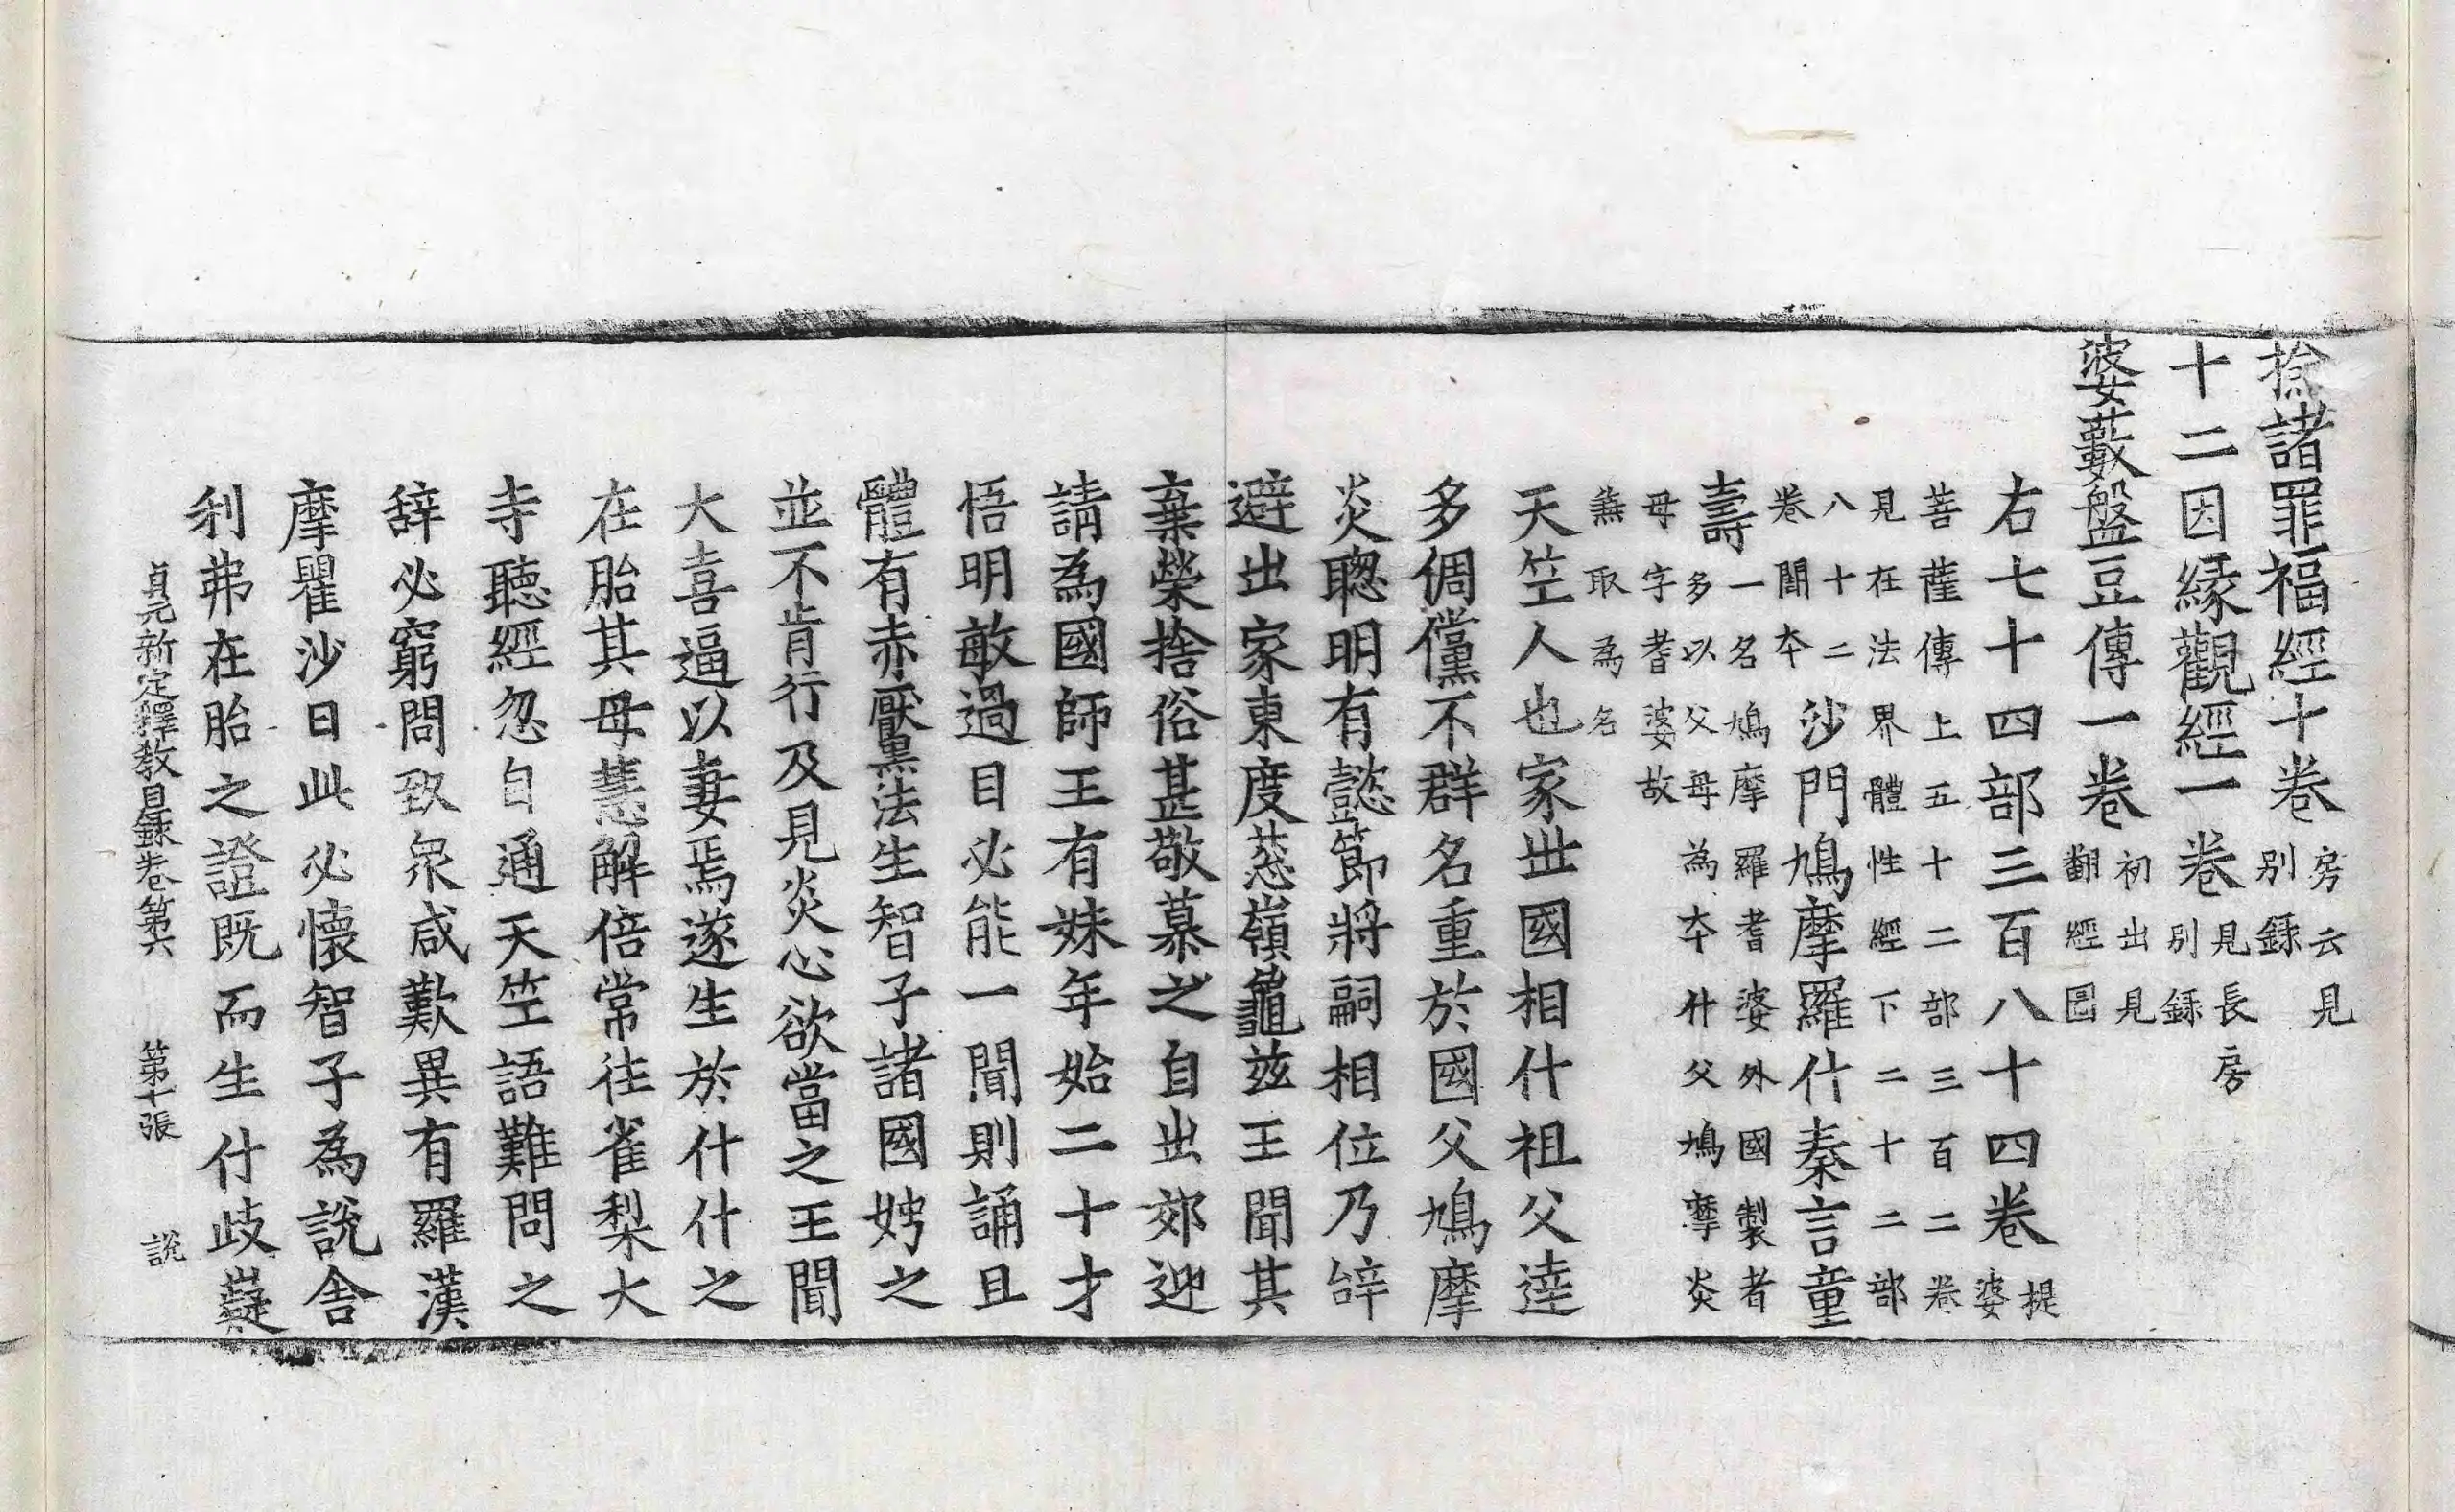 捴諸罪福經十卷房云見別録
十二因緣觀經一卷見長房別録
婆藪盤豆傳一卷初出見翻經圖
右七十四部三百八十四卷提婆
菩薩傳上五十二部三百二卷
見在法界體性經下二十二部
八十二卷闕夲沙門鳩摩羅什秦言童
壽一名鳩摩羅耆婆外國製者多以父母為夲什父鳩摩炎
母字耆婆故𠔥取為名
天竺人也家世國相什祖父逹
多倜儻不群名重於國父鳩摩
炎聰明有懿節將嗣相位乃辝
避出家東度葱嶺龜茲王聞其
棄榮捨俗甚敬慕之自出郊迎
請為國師王有妹年始二十才
悟明敏過目必能一聞則誦且
體有赤黶法生智子諸國娉之
並不肯行及見炎心欲當之王聞
大喜逼以妻焉遂生於什什之
在胎其母慧解倍常往雀梨大
寺聽經忽自通天竺語難問之
辞必窮問致衆咸歎異有羅漢
摩瞿沙曰此必懷智子為說舍
利弗在胎之證既而生什歧嶷
貞元新定釋教目録卷第六 第十張 説